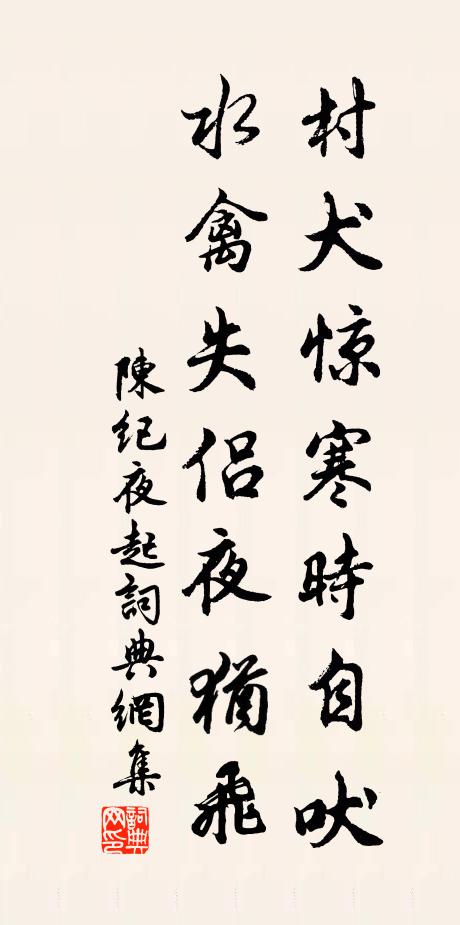 村犬惊寒時自吠
水禽失侣夜猶飛
陳纪夜起詞典網集
詞典网印